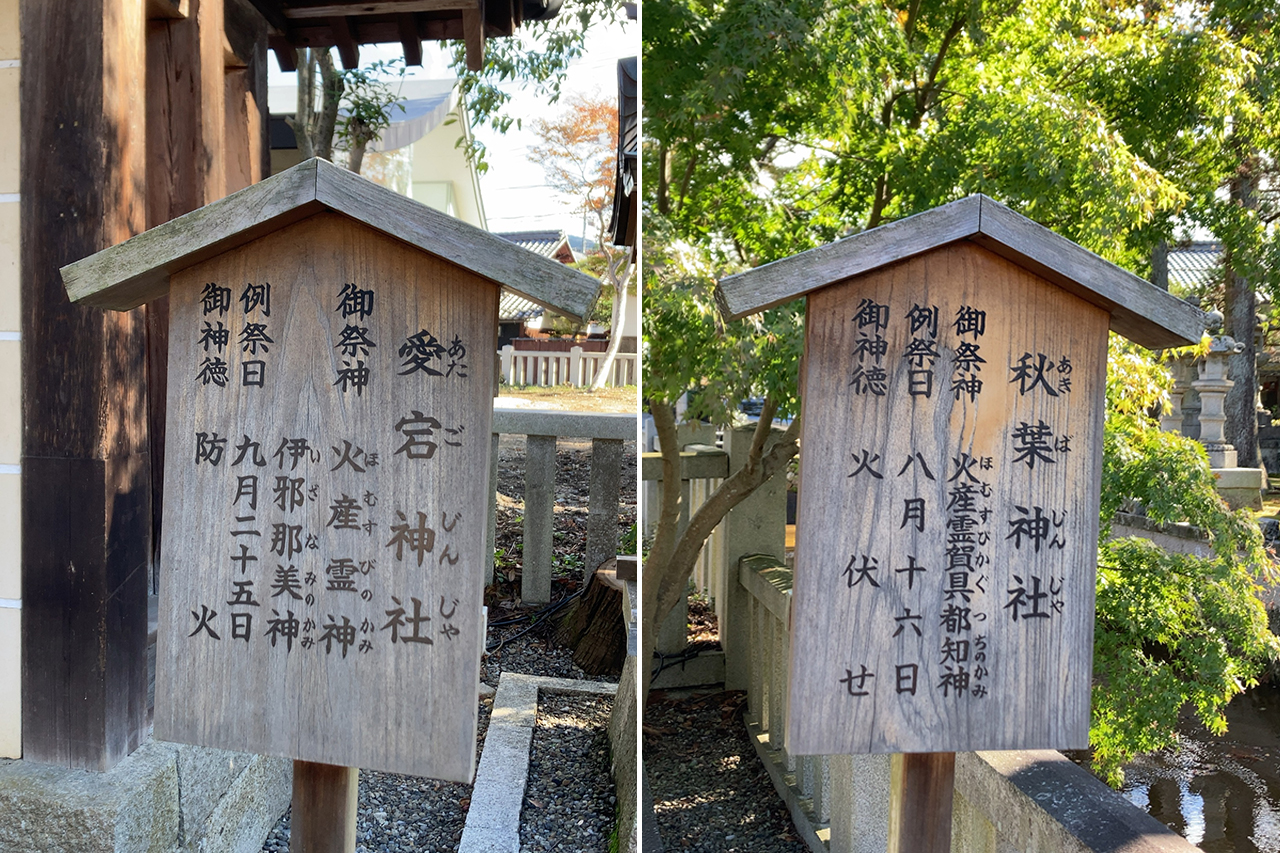 愛宕神社
あたごじんじゃ
御祭神 火産霊神
ほむすびのかみ
伊邪那美神
いざなみのかみ
例祭日 九月二十五日
御神徳 防火
秋葉神社
あきばじんじゃ
御祭神 火産霊賀具都知神
ほむすびかぐつちのかみ
例祭日 八月十六日
御神徳 火伏せ